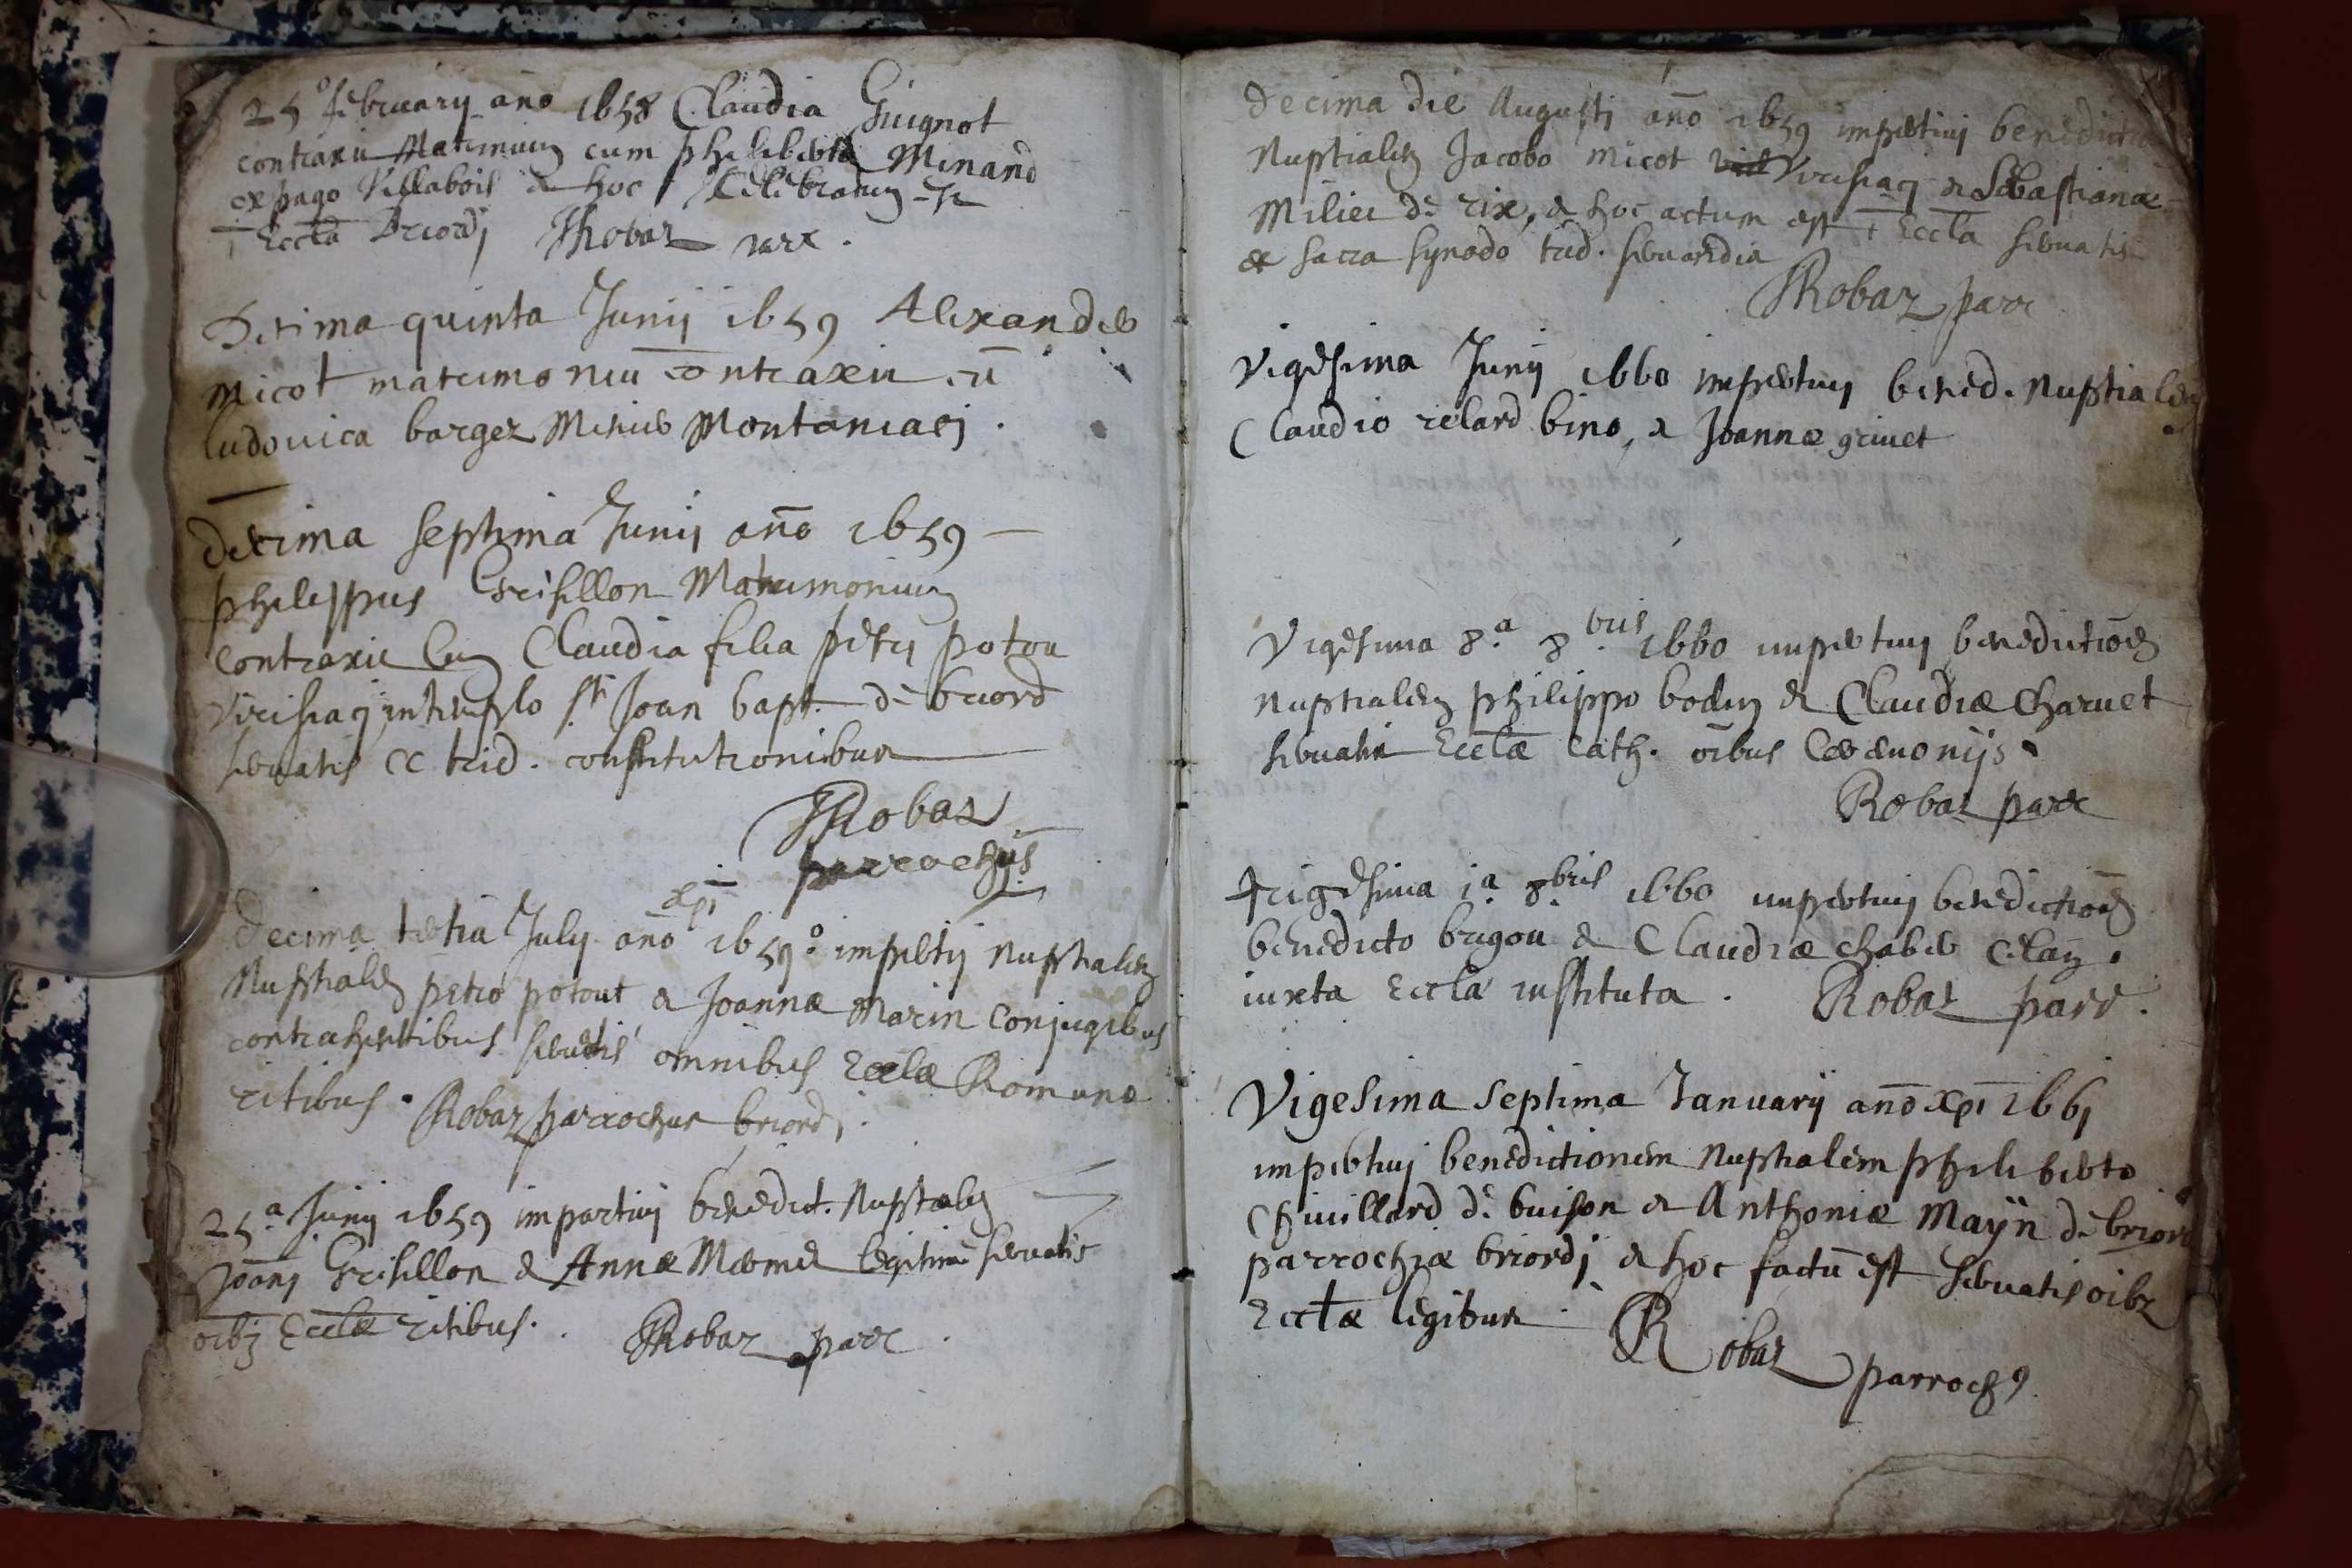 25° februarij año 1658 Claudia Guignot
contraxit Matrimoniũ cum philiberto Minand
ex pago Villabois & hoc celebratum
ĩ Eccła Briordj JRobaz
Decima quinta Junij 1659 Alexander
Micot matrimoniũ contraxit cũ
ludovica bargez Montaniacj .
decima septima Junij año 1659
philippus Grisillon Matrimonium
contraxit cum Claudia filia petri potou
Virisiacj in templo sti Joan bapt. de briord
servatis CC trid. constitutionibus
JRobaz
parrochus
xpi
decima tertia July año 1659° impertij Nuptialem
Nuptialem petro potout & Joannæ Marin Conjugibus
contrahentibus servatis omnibus Ecclæ Romanæ
ritibus . JRobaz parrochus briordj .
25a Junij 1659 impartivj benedict. Nuptialem
Joannj Grisillon & Annæ legitime servatis
oibz Ecclæ ritibus . JRobaz parr .
decima die Augusti año 1659 impertivj benedictio
Nuptialem Jacobo Micot Virisiacj & Sebastianæ
Miliet de rix, & hoc actum est ĩ Eccła servatis
& sacra synodo trid. servandis
JRobaz parr
Vigesima Junij 1660 impertivj bened. Nuptialem
Claudio relard bino, & Joannæ grivet
Vigesima 8.a 8.bris 1660 impertivj benedictiõem
Nuptialem philippo bodin & Claudiæ Charvet
servatis Ecclæ Cath. oibus Ceremonijs .
Robaz parr
trigesima 1.a 8.bris 1660 impertivj benedictiõem
benedicto brigou & Claudiæ chaber
iuxta Eccła instituta . Robaz parr .
Vigesima septima Januarij año xpi 1661
impertivj benedictionem Nuptialem philiberto
Chivillard de buison & Anthoniæ Mayïn de briord
parrochiæ briordj & hoc factũ est servatis oibz
Ecclæ legibus . Robaz parroch9